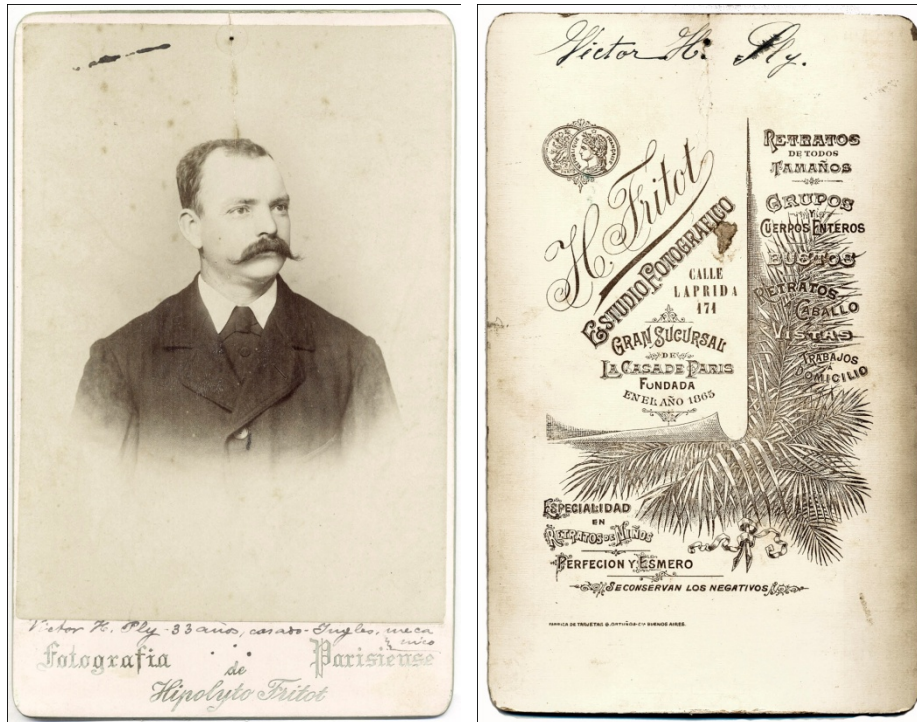 Victor H. Ply - 33 años, casado - Ingles, meca
nico
Fotografia
de
Parisiense
Hipolyto Fritot
Victor H. Ply.
H Fritot
ESTUDIO FOTOGRAFICO
CALLE
LAPRIDA
171
GRAN SUCURSAL
DE
LA CASA DE PARIS
FUNDADA
EN EL AÑO 1865
RETRATOS
DE TODOS
TAMAÑOS
GRUPOS
Y
CUERPOS ENTEROS
BUSTOS
RETRATOS
A CABALLO
VISTAS
TRABAJOS
A
DOMICILIO
ESPECIALIDAD
EN
RETRATOS DE NIÑOS
PERFECION Y ESMERO
SE CONSERVAN LOS NEGATIVOS
FABRICA DE TARJETAS G. ORTUÑO & Cia BUENOS AIRES.